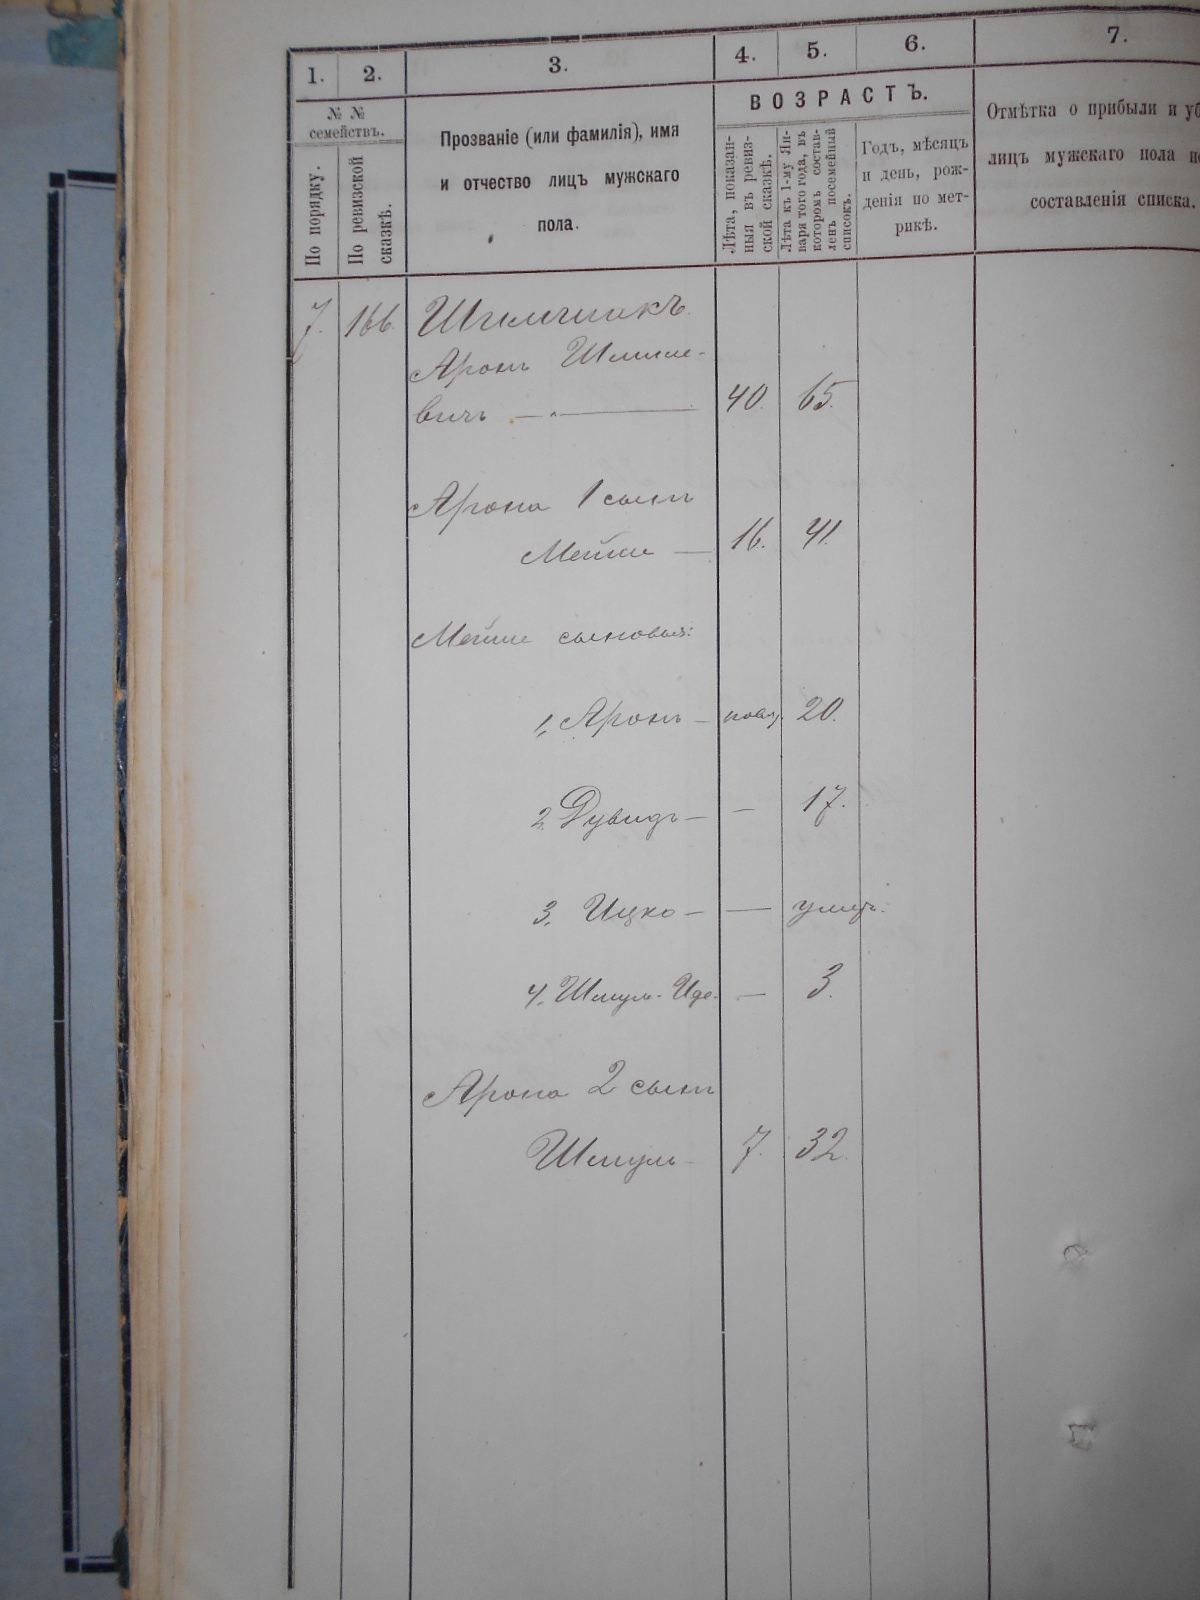 1. 2. 3. 4. 5. 6. 7.
№ №
семействъ.
По порядку.
По ревизской
сказкѣ.
Прозваніе (или фамилія), имя
и отчество лицъ мужскаго
пола.
ВОЗРАСТЪ.
Лѣта, показан-
ныя въ ревиз-
ской сказкѣ.
Лѣта къ 1-му Ян-
варя того года, въ
которомъ состав-
ленъ посемейный
списокъ.
Годъ, мѣсяцъ
и день, рож-
денія по мет-
рикѣ.
Отмѣтка о прибыли и уб
лицъ мужскаго пола по
составленія списка.
7. 166.
Аронъ
вичъ — 40. 65.
Арона 1 сынъ
Мейше — 16. 41.
Мейше сыновья:
1, Аронъ — новр. 20.
2, Дувидъ — — 17.
3, Ицко — — умер.
4, Шмуль-Иде. — 3.
Арона 2 сынъ
Шмуль — 7. 32.